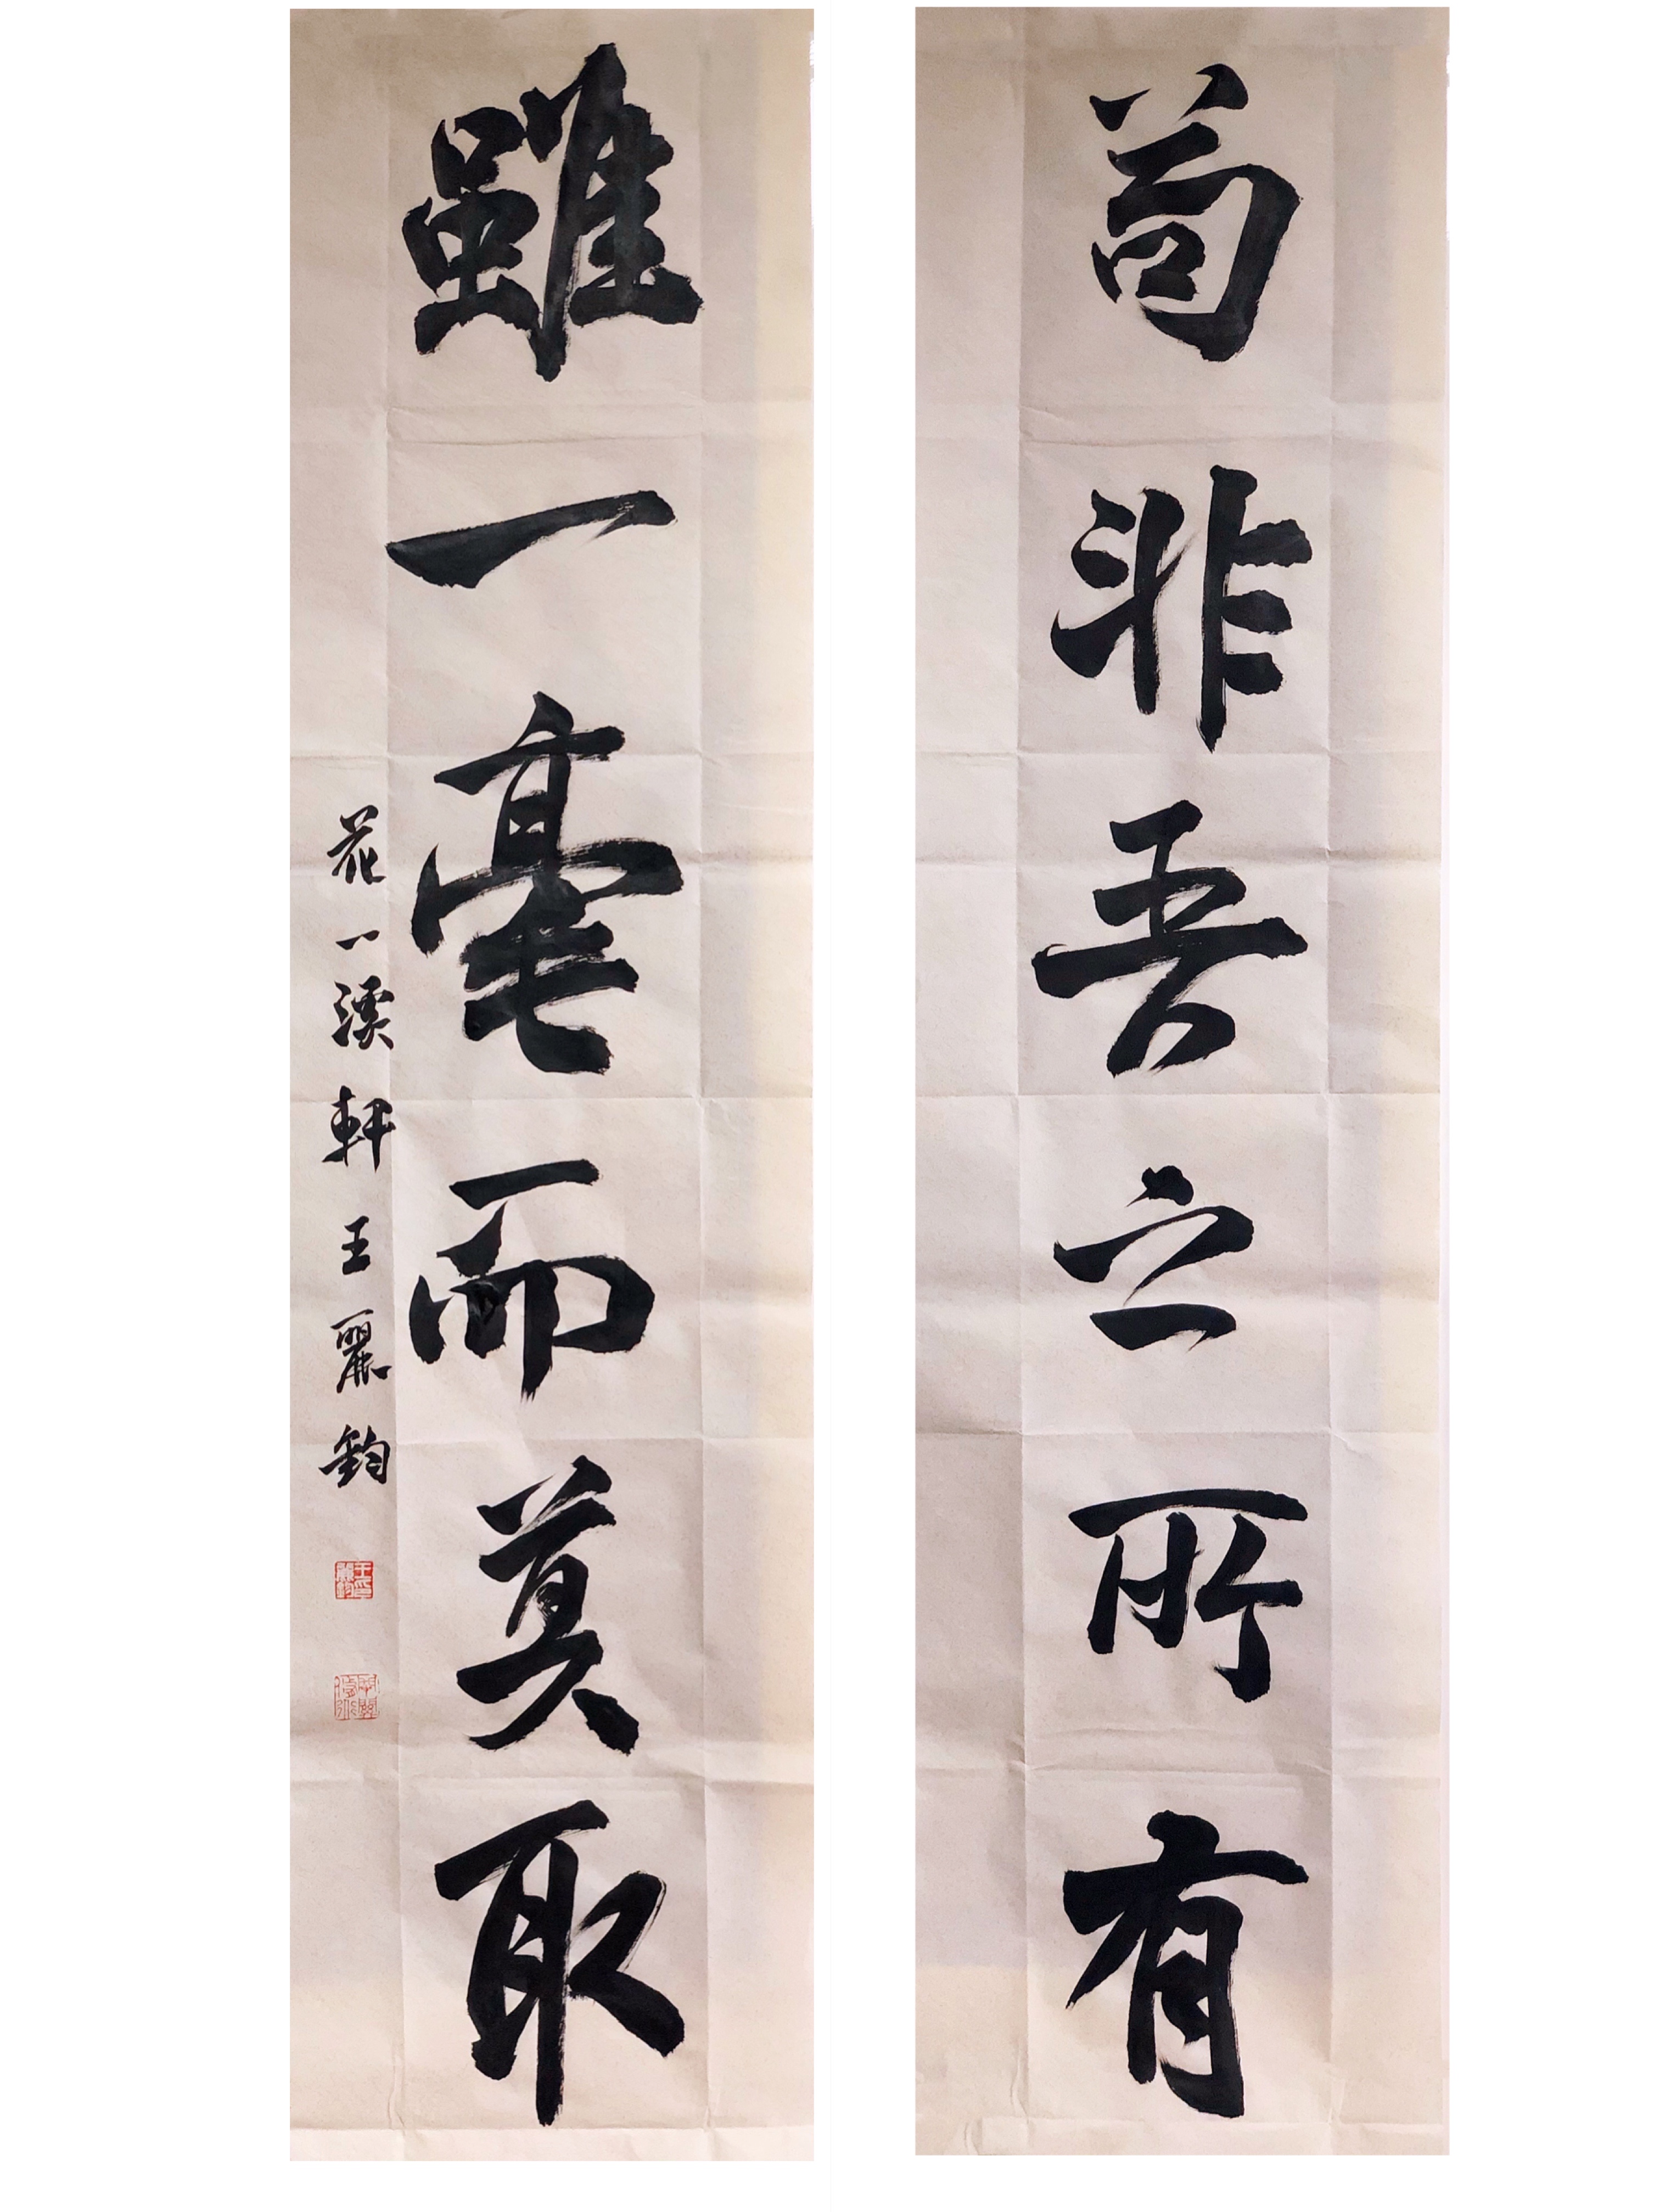 苟非吾之所有
雖一毫而莫取
花一溪軒王麗鈞